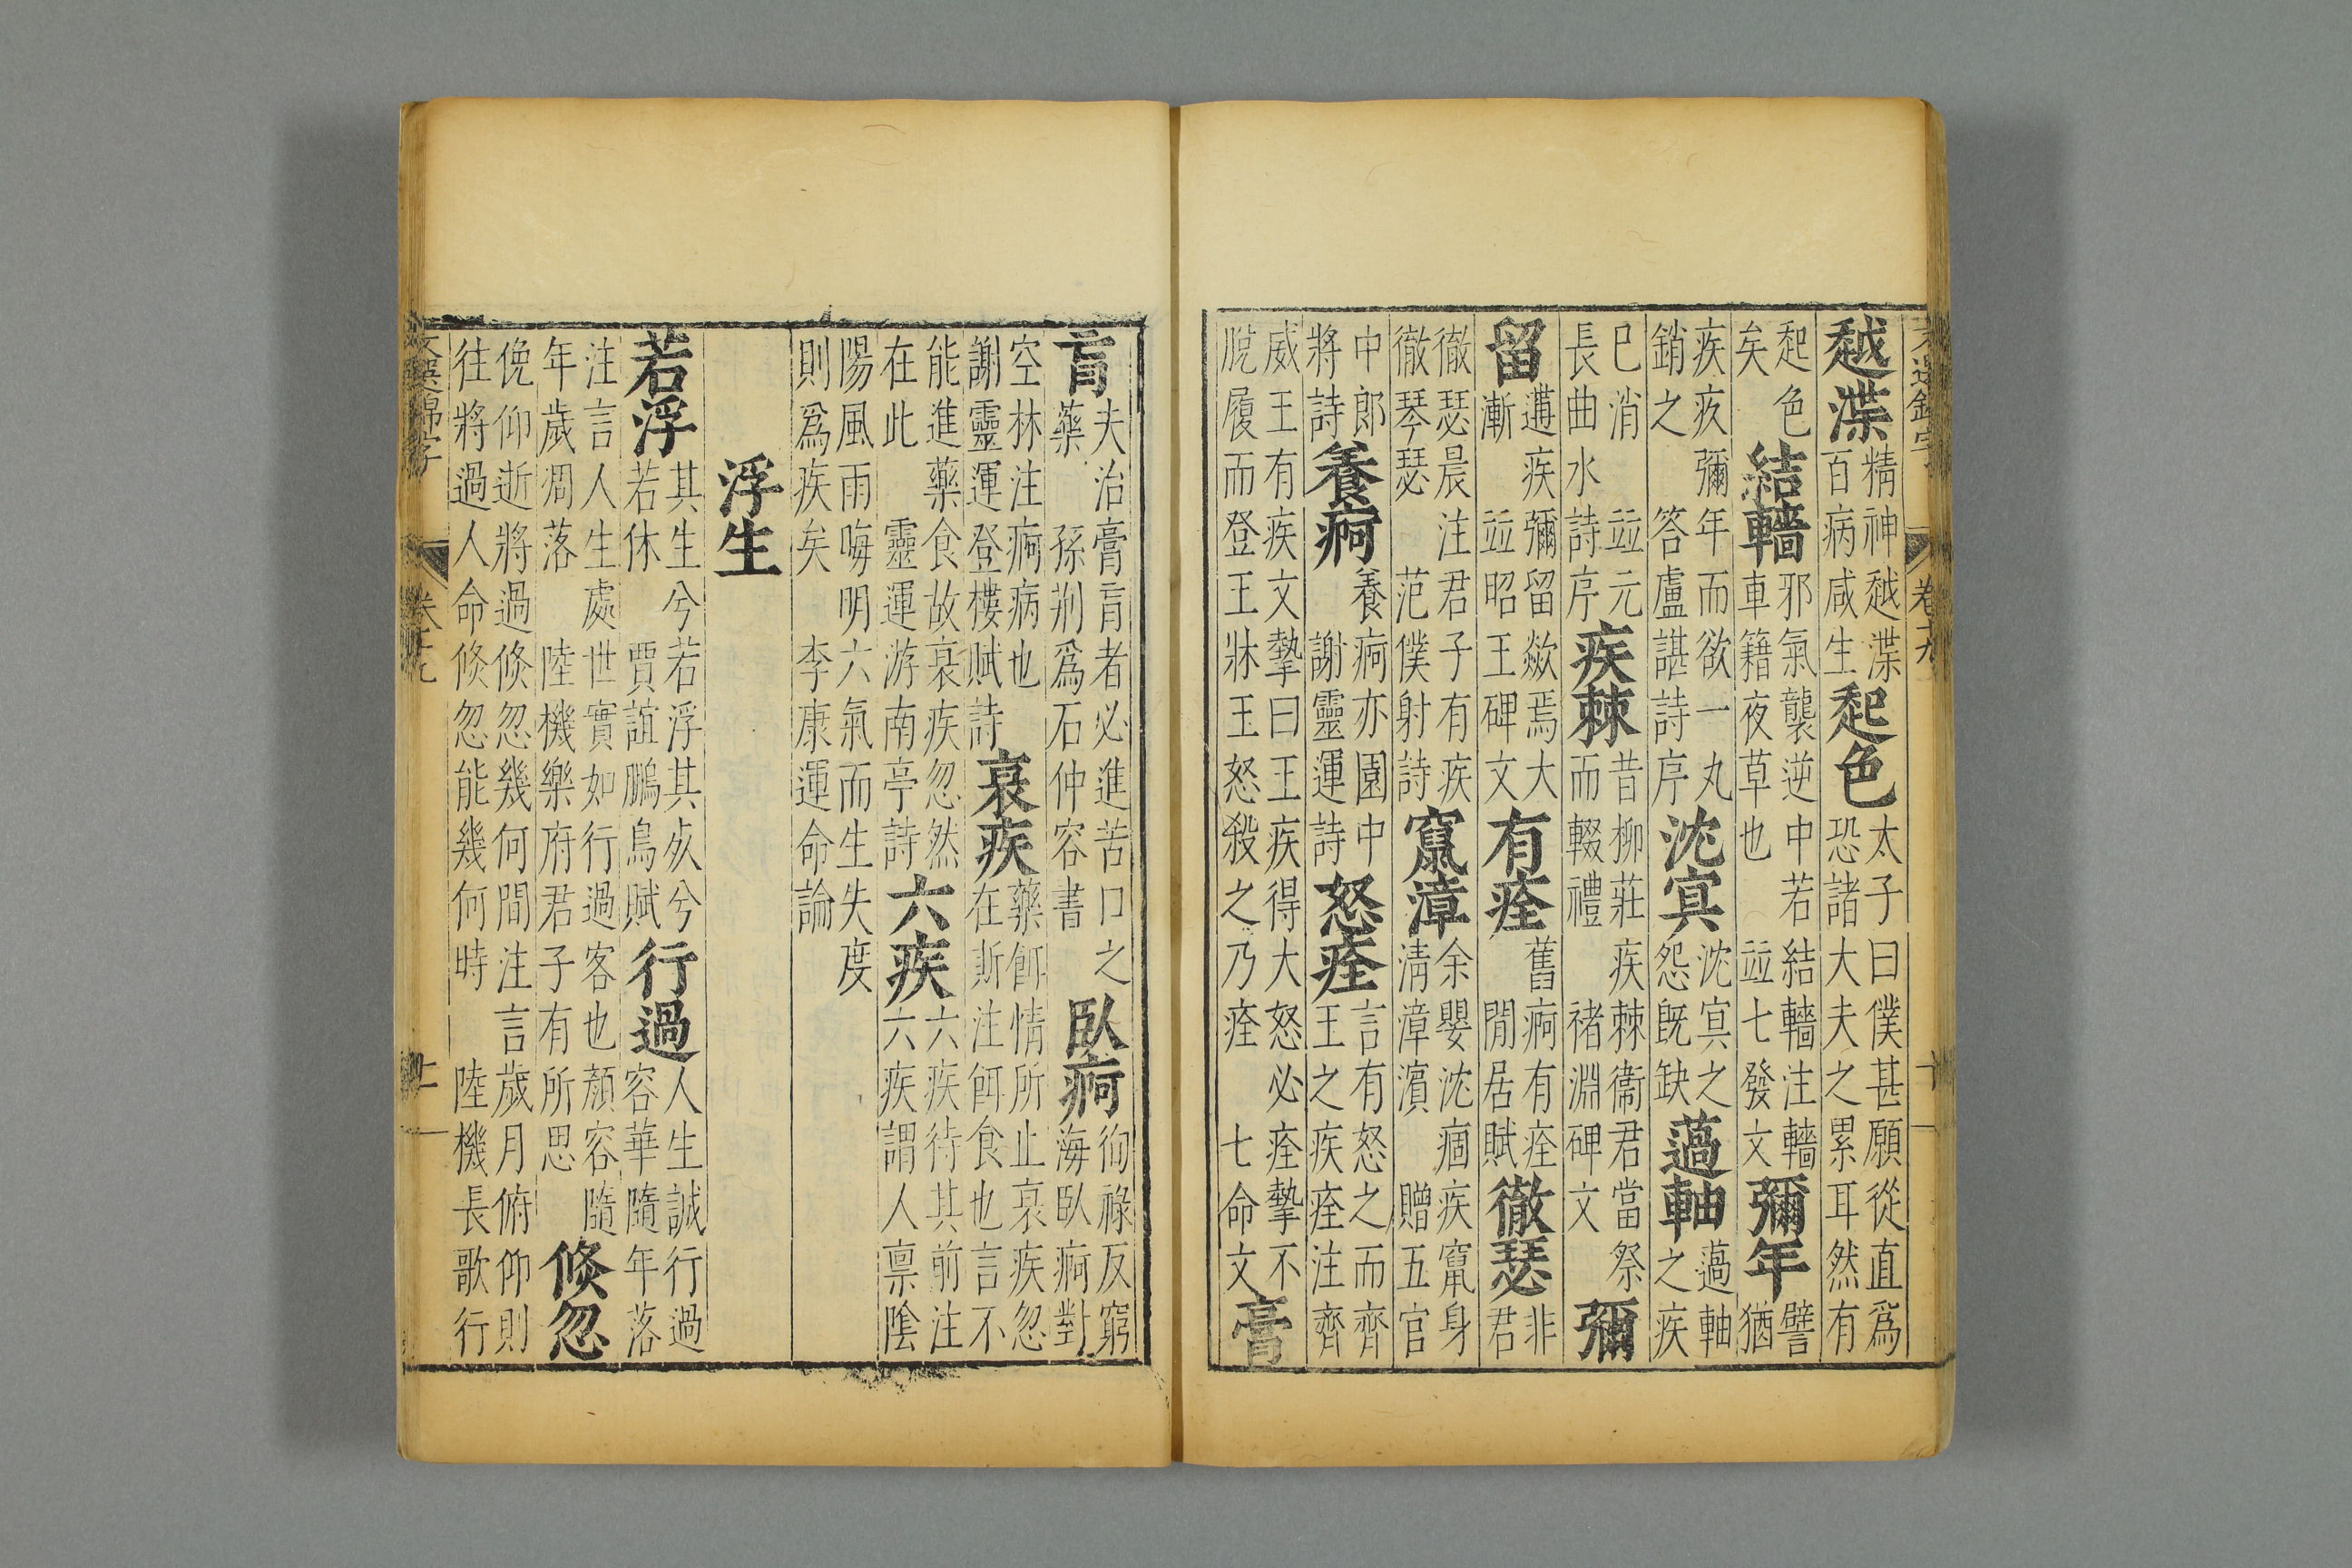 文選錦字 卷十九
越渫精神越渫百病咸生起色太子曰僕甚願從直爲恐諸大夫之累耳然有
起色矣結轖邪氣襲逆中若結轖注轖車籍夜草也 並七發文彌年譬猶
疾疚彌年而欲一丸銷之 答盧諶詩序沈冥沈冥之怨旣缺薖軸薖軸之疾
巳消 並元長曲水詩序疾棘昔柳莊疾棘衞君當祭而輟禮 褚淵碑文彌
留遘疾彌留欻焉大漸 並昭王碑文有痊舊痾有痊閒居賦徹瑟非君
徹瑟晨注君子有疾徹琴瑟 范僕射詩竄漳余嬰沈痼疾竄身清漳濱 贈五官
中郎將詩養痾養痾亦園中 謝靈運詩怒痊言有怒之而齊王之疾痊注齊
威王有疾文摯曰王疾得大怒必痊摯不脫履而登王牀王怒殺之乃痊 七命文膏
肓夫治膏肓者必進苦口之藥 孫荆爲石仲容書臥痾徇祿反窮海臥痾對
空林注痾病也謝靈運登樓賦詩哀疾藥餌情所止哀疾忽在斯注餌食也言不
能進藥食故哀疾忽然在此 靈運游南亭詩六疾六疾待其前注六疾謂人禀陰
陽風雨晦明六氣而生失度則爲疾矣 李康運命論
浮生
若浮其生兮若浮其死兮若休 賈誼鵩鳥賦行過人生誠行過容華隨年落
注言人生處世實如行過客也顔容隨年歲凋落 陸機樂府君子有所思倏忽
俛仰逝將過倏忽幾何間注言歲月俯仰則往將過人命倏忽能幾何時 陸機長歌行
文選錦字 卷十九